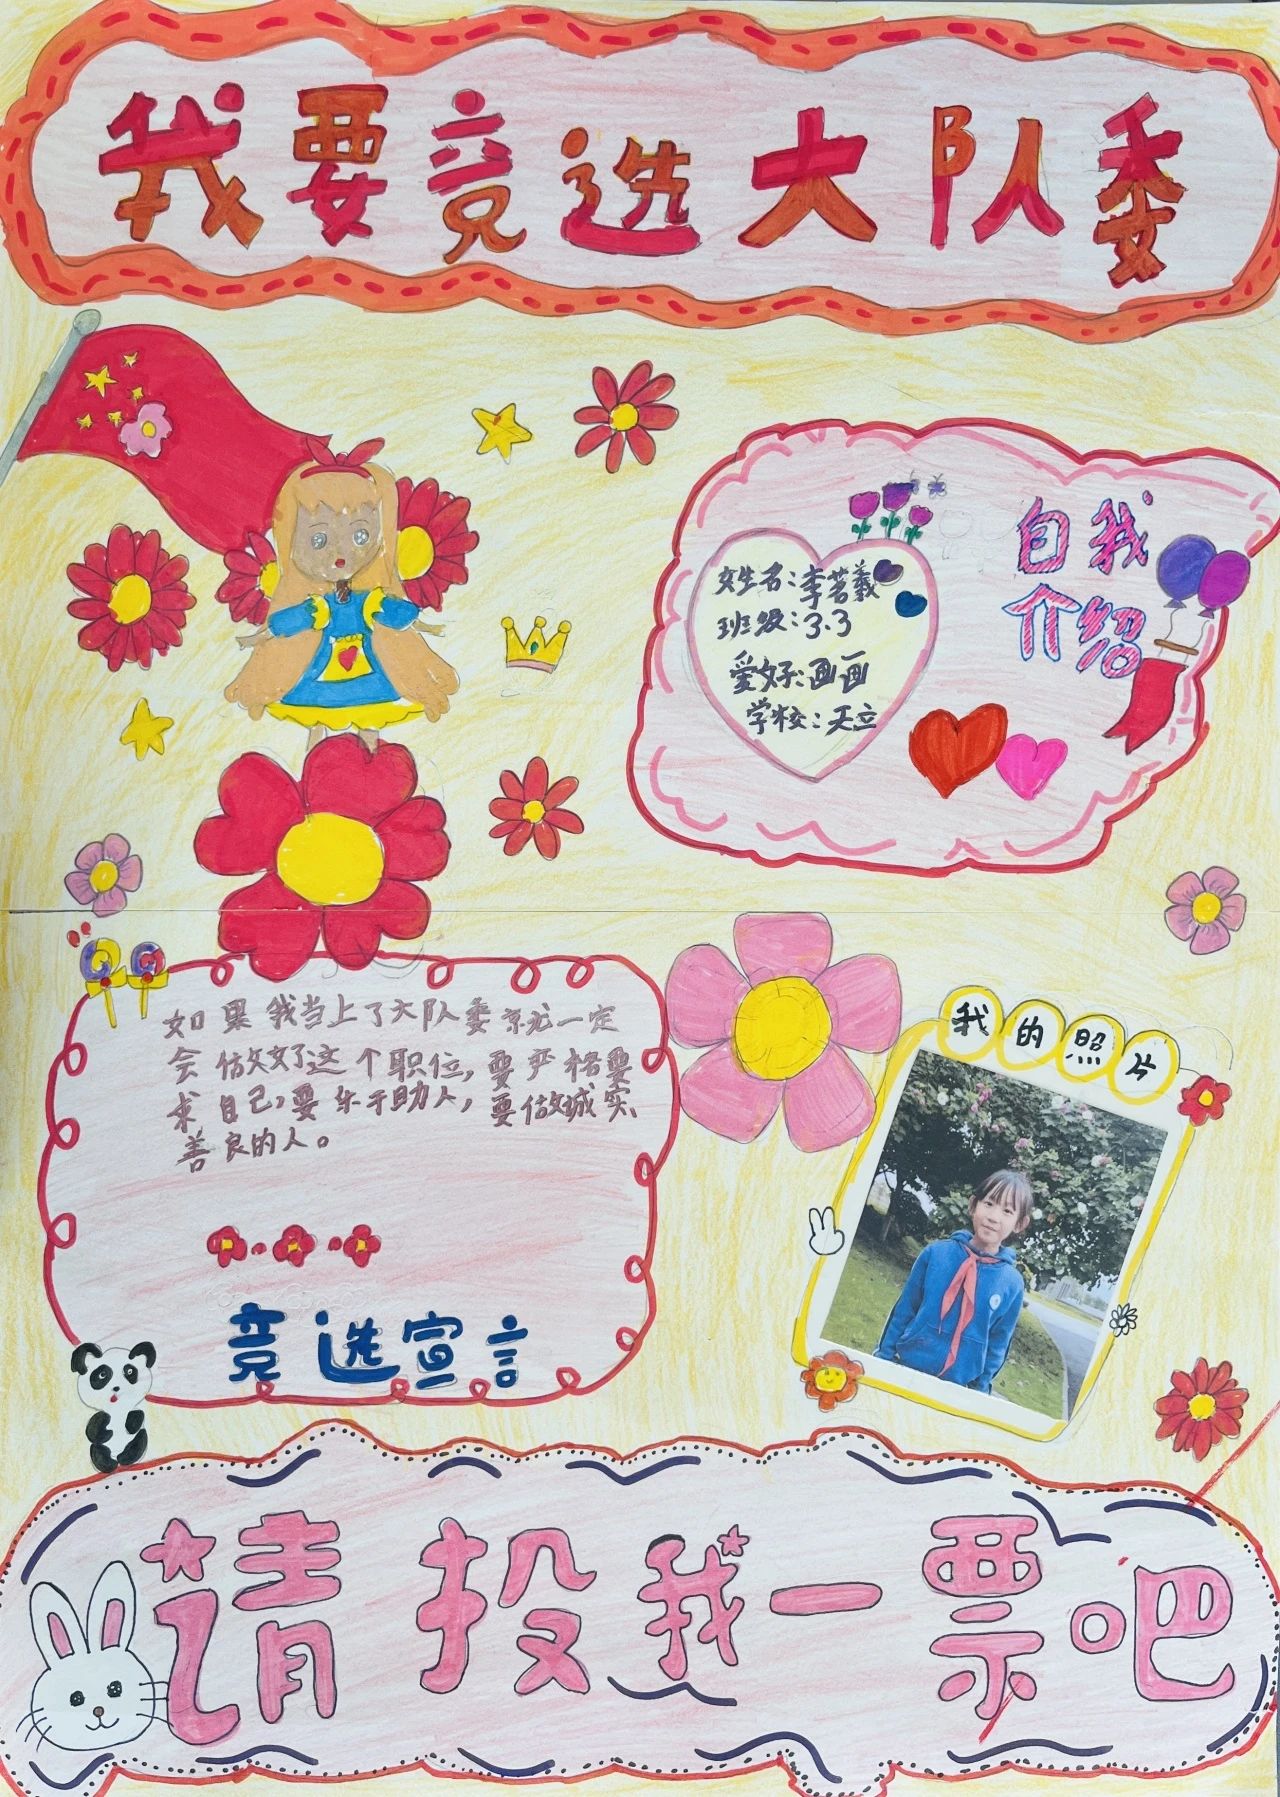 我要竞选大队委
自我
介绍
姓名:李茗羲
班级:3.3
爱好:画画
学校:天立
如果我当上了大队委就一定
会做好这个职位,要严格要
求自己,要乐于助人,要做诚实、
善良的人。
竞选宣言
我的照片
请投我一票吧